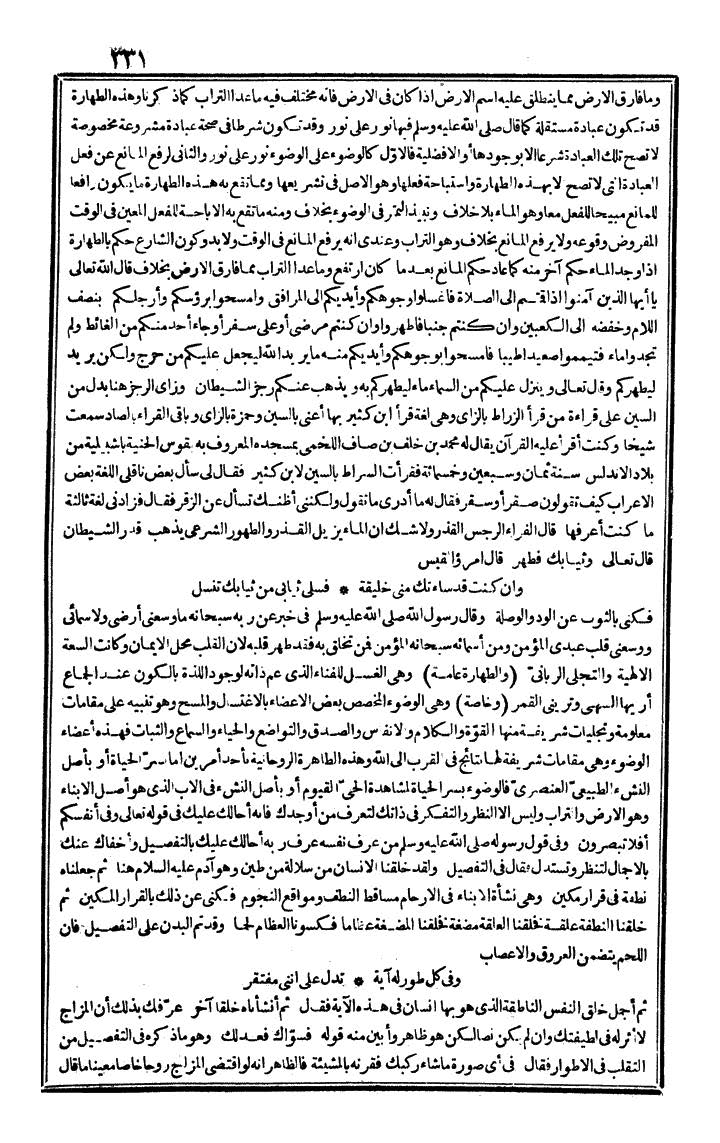 ٣٣١
ومافارق الارض مما ينطلق عليه اسم الارض اذا كان فى الارض فانه مختلف فيه ماعدا التراب كماذكرنا وهذه الطهارة
قد تكون عبادة مستقلة كما قال صلى الله عليه وسلم فيها نور على نور وقد تكون شرطا فى صحة عبادة مشروعة مخصوصة
لاتصح تلك العبادة شرعا الابوجودها أو الافضلية فالاوّل كالوضوء على الوضوء نور على نور والثانى لرفع المانع عن فعل
العبادة التى لا تصح الابهذه الطهارة واستباحة فعلها وهو الاصل فى تشريعها ومما تقع به هذه الطهارة ما يكون رافعا
للمانع مبيحا للفعل معا وهو الماء بلاخلاف ونبيذ التمر فى الوضوء بخلاف ومنه ما تقع به الاباحة للفعل المعين فى الوقت
المفروض وقوعه ولا يرفع المانع بخلاف وهو التراب وعندى انه يرفع المانع فى الوقت ولابد وكون الشارع حكم بالطهارة
اذا وجد الماء حكم آخر منه كما عاد حكم المانع بعد ما كان ارتفع وماعدا التراب مما فارق الارض بخلاف قال الله تعالى
يا أيها الذين آمنوا اذا قتم الى الصلاة فاغسلوا وجوهكم وأيديكم الى المرافق وامسحوا برؤسكم وأرجلكم بنصف
اللام وخفضه الى الكعبين وان كنتم جنبا فاطهروا وان كنتم مرضى أو على سفر أو جاء أحد منكم من الغائط ولم
تجدوا ماء فتيمموا صعيدا طيبا فامسحوا بوجوهكم وأيديكم منه ما يريد الله ليجعل عليكم من حرج ولكن يريد
ليطهركم وقال تعالى وينزل عليكم من السماء ماء ليطهركم به ويذهب عنكم رجز الشيطان وزاى الرجز هنا بدل من
السين على قراءة من قرأ الزراط بالزاى وهى لغة قرأ ابن كثير بها أعنى بالسين وحمزة بالزاى وباقى القراء بالصاد سمعت
شيخا وكنت أقرأ عليه القرآن يقال له محمد بن خلف بن صاف اللخمى بمسجده المعروف به بقوس الحنية باشبيلية من
بلاد الاندلس سنة ثمان وسبعين وخمسمائة فقرأت السراط بالسين لابن كثير فقال لى سأل بعض ناقلى اللغة بعض
الاعراب كيف تقولون صقر أو سقر فقال له ما أدرى ما تقول ولكننى أظنك تسأل عن الزقر فقال فزادنى لغة ثالثة
ما كنت أعرفها قال الفراء الرجس القذر ولاشك ان الماء يزيل القذر والطهور الشرعى يذهب قذر الشيطان
قال تعالى وثيابك فطهر قال امرؤ القيس
وان كنت قد ساءتك منى خليقة * فسلى ثيابى من ثيابك تنسل
فكنى بالثوب عن الود والوصلة وقال رسول الله صلى الله عليه وسلم فى خبر عن ربه سبحانه ما وسعنى أرضى ولاسمائى
ووسعنى قلب عبدى المؤمن ومن أسمائه سبحانه المؤمن فمن تخلق به فقد طهر قلبه لان القلب محل الايمان وكانت السعة
الالهية والتجلى الربانى (والطهارة عامة) وهى الغسل للفناء الذى عم ذاته لوجود اللذة بالكون عند الجماع
أريها السهى وترينى القمر (وخاصة) وهى الوضوء المخصص ببعض الاعضاء بالاغتسال والمسح وهو تنبيه على مقامات
معلومة وتجليات شريفة منها القوّة والكلام والانفس والصدق والتواضع والحياء والسماع والثبات فهذه أعضاء
الوضوء وهى مقامات شريفة لها نتائج فى القرب الى الله وهذه الطاهرة الروحانية بأحد أمرين اما سرّ الحياة أو بأصل
النشء الطبيعى العنصرى فالوضوء بسر الحياة لمشاهدة الحىّ القيوم أو بأصل النشء فى الاب الذى هو أصل الابناء
وهو الارض والتراب وليس الاالنظر والتفكر فى ذاتك لتعرف من أوجدك فانه أحالك عليك فى قوله تعالى وفى أنفسكم
أفلا تبصرون وفى قول رسوله صلى الله عليه وسلم من عرف نفسه عرف ربه أحالك عليك بالتفصيل وأخفاك عنك
بالاجمال لتنظر وتستدل فقال فى التفصيل ولقد خلقنا الانسان من سلالة من طين وهو آدم عليه السلام هنا ثم جعلناه
نطفة فى قرار مكين وهى نشأة الابناء فى الارحام مساقط النطف ومواقع النجوم فكنى عن ذلك بالقرار المكين ثم
خلقنا النطفة علقة فخلقنا العلقة مضغة فخلقنا المضغة عظاما فكسونا العظام لحما وقد تم البدن على التفصيل فان
اللحم يتضمن العروق والاعصاب
وفى كل طور له آية * تدل على اننى مفتقر
ثم أجمل خلق النفس الناطقة الذى هو بها انسان فى هذه الآية فقال ثم أنشأناه خلقا آخر عرّفك بذلك أن المزاج
لا أثر له فى لطيفتك وان لم يكن نصا لكن هو ظاهر وأبين منه قوله فسوّاك فعدلك وهو ماذكره فى التفصيل من
التقلب فى الاطوار فقال فى أى صورة ماشاء ركبك فقرنه بالمشيئة فالظاهر انه لو اقتضى المزاج روحا خاصا معينا ما قال